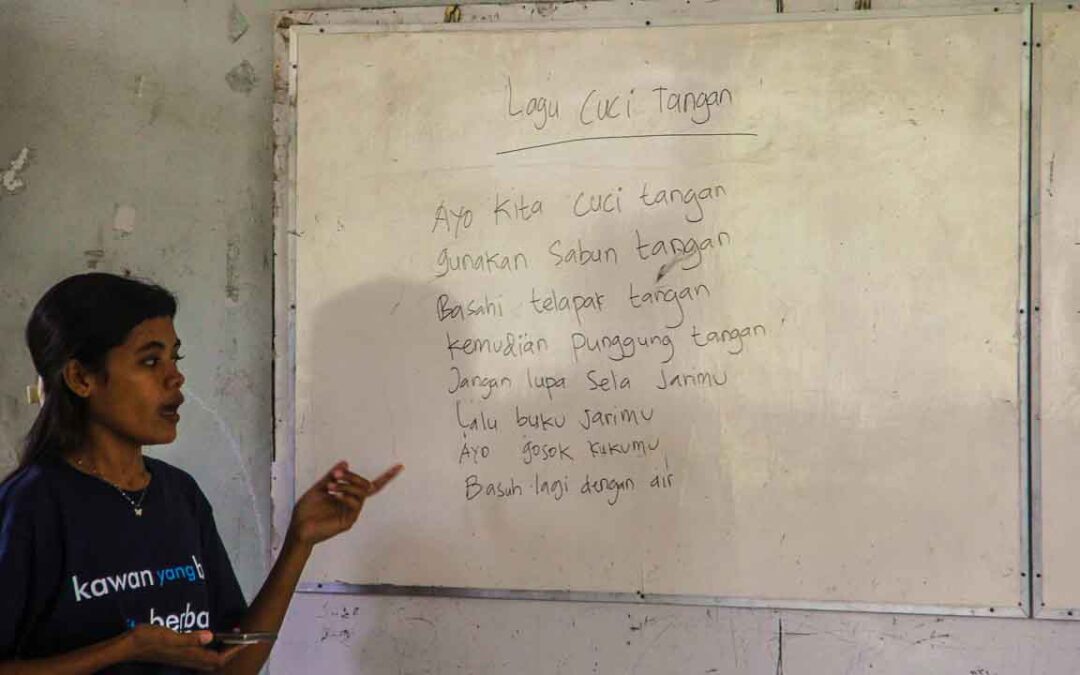 Lagu Cuci Tangan
Ayo Kita Cuci tangan
gunakan Sabun tangan
Basahi telapak tangan
kemudian Punggung tangan
Jangan lupa Sela Jarimu
Lalu buku Jarimu
Ayo gosok kukumu
Basuh lagi dengan air
kawan yang